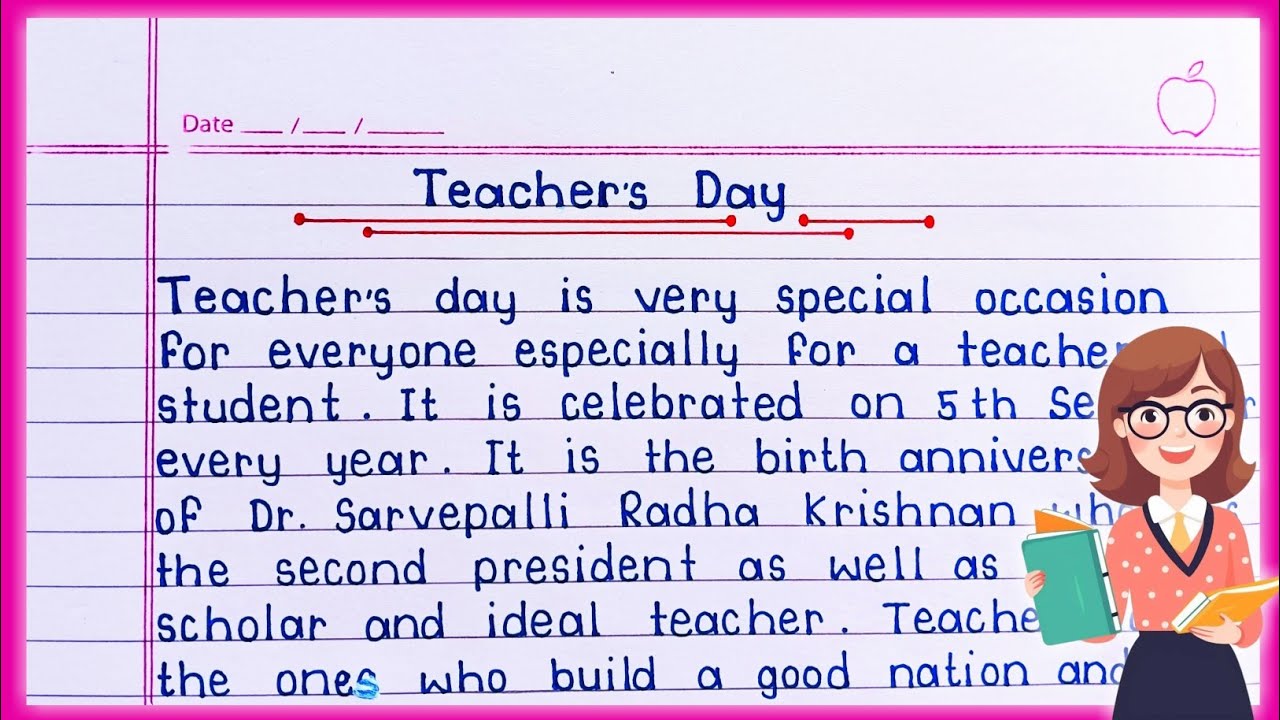 Date ___ /___ /_____
Teacher's Day
Teacher's day is very special occasion
for everyone especially for a
student. It is celebrated on 5th
every year. It is the birth
of Dr. Sarvepalli Radha Krishnan
the second president as well as
scholar and ideal teacher.
the ones who build a good nation and